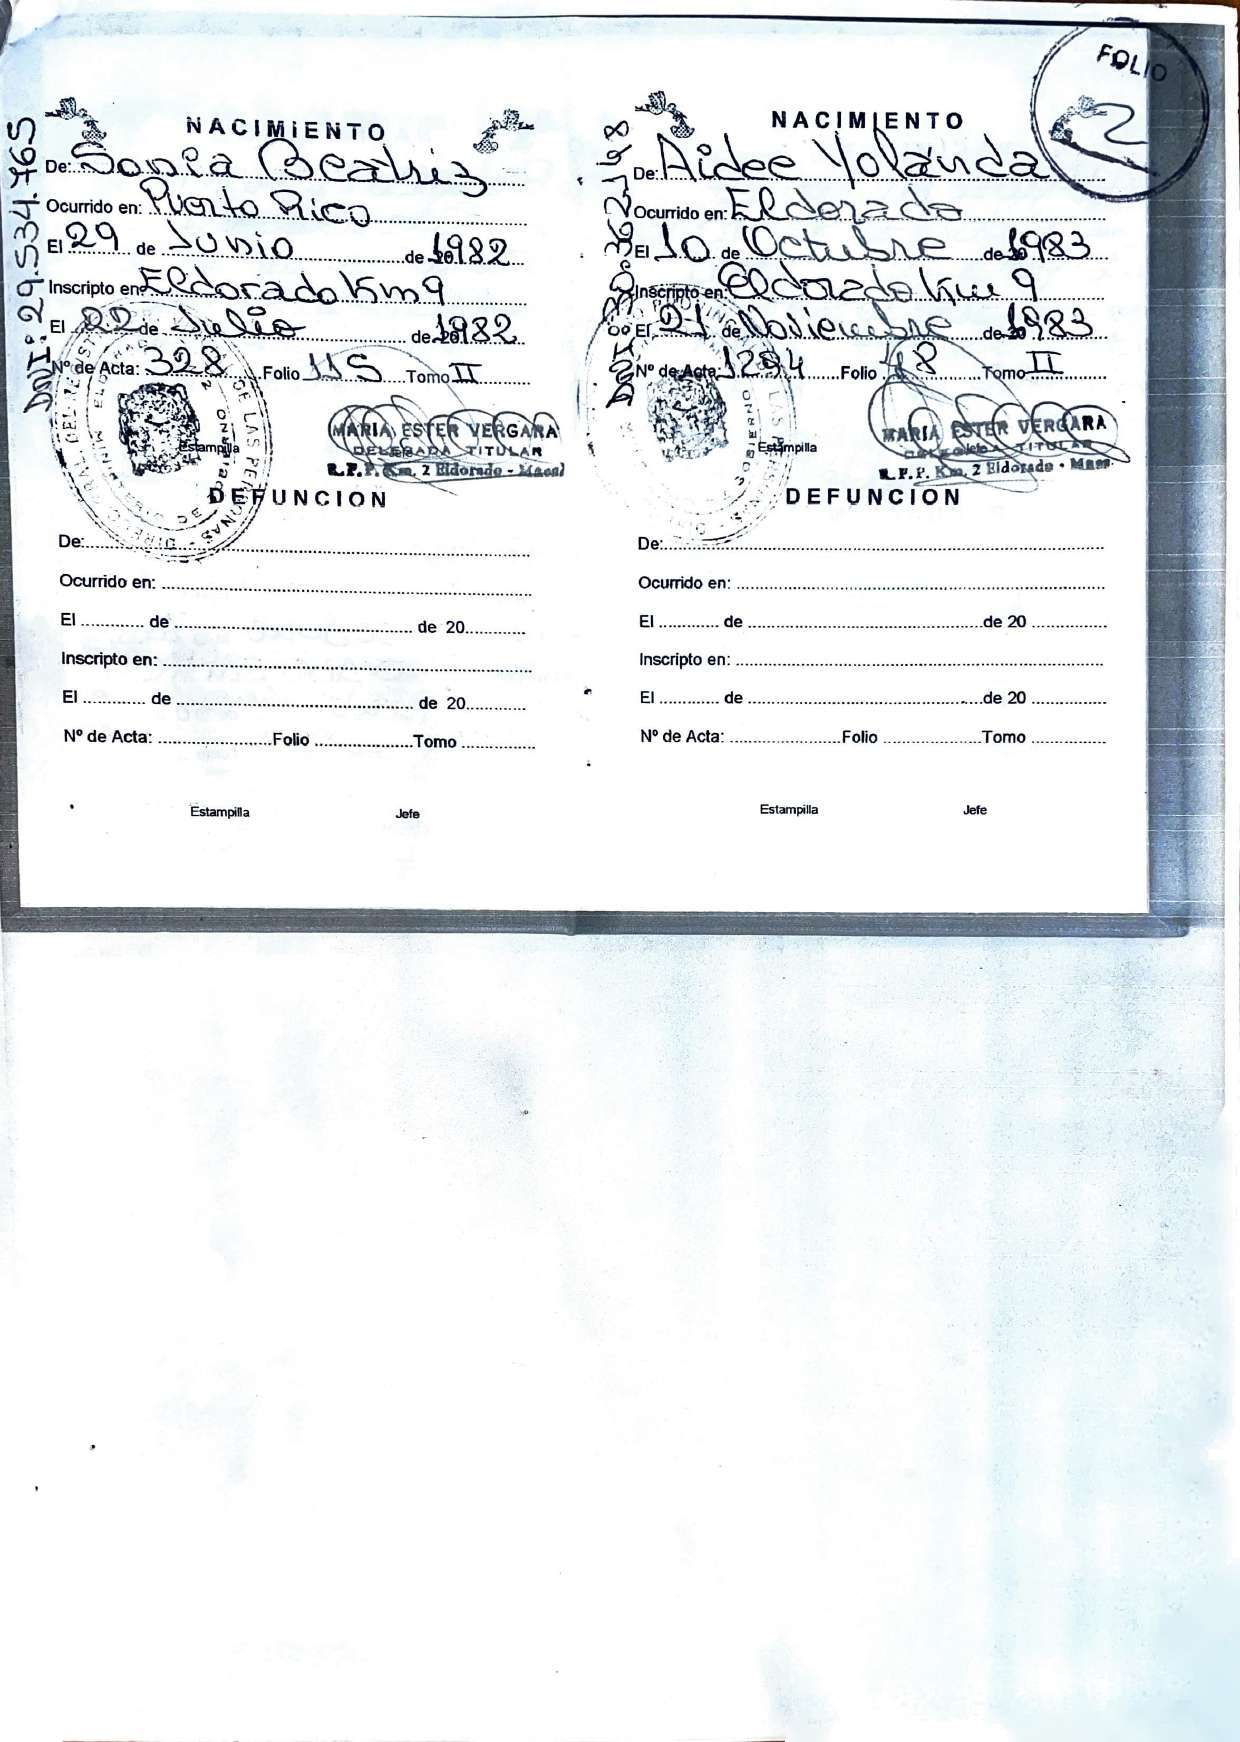 FOLIO
2
DNI: 29.534.765
NACIMIENTO
De: Sonia Beatriz
Ocurrido en: Puerto Rico
El 29 de Junio de 1982
Inscripto en Eldorado Km 9
El 22 de Julio de 1982
Nº de Acta: 328 Folio 115 Tomo II
Estampilla
MARIA ESTER VERGARA
DELEGADA TITULAR
R.P.P. Km. 2 Eldorado - Mnes
DEFUNCION
De:
Ocurrido en:
El de de 20
Inscripto en:
El de de 20
Nº de Acta: Folio Tomo
Estampilla Jefe
NACIMIENTO
De: Aidee Yolanda
Ocurrido en: Eldorado
El 10 de Octubre de 1983
Inscripto en: Eldorado Km 9
El 21 de Noviembre de 1983
Nº de Acta: Folio 48 Tomo II
Estampilla
MARIA ESTER VERGARA
TITULAR
R.P.P. Km. 2 Eldorado - Mnes
DEFUNCION
De:
Ocurrido en:
El de de 20
Inscripto en:
El de de 20
Nº de Acta: Folio Tomo
Estampilla Jefe